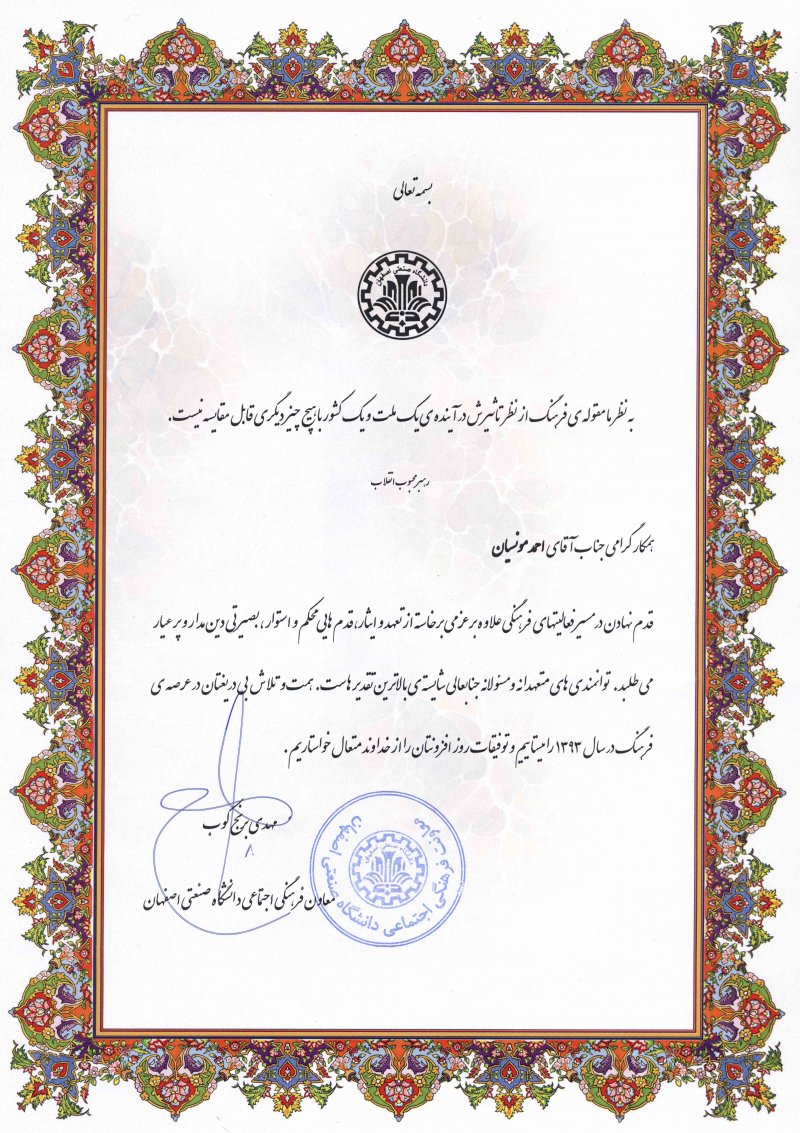 بسمه تعالی
دانشگاه صنعتی اصفهان
به نظر ما مقوله ی فرهنگ از نظر تاثیرش در آینده ی یک ملت و یک کشور با هیچ چیز دیگری قابل مقایسه نیست.
رهبر محبوب انقلاب
همکار گرامی جناب آقای احمد مونسیان
قدم نهادن در مسیر فعالیتهای فرهنگی علاوه بر عزمی برخاسته از تعهد و ایثار، قدم هایی محکم و استوار، بصیرتی دین مدار و پر عیار
می طلبد. توانمندی های متعهدانه و مسئولانه جنابعالی شایسته ی بالاترین تقدیر هاست. همت و تلاش بی دریغتان در عرصه ی
فرهنگ در سال ۱۳۹۳ را میستاییم و توفیقات روز افزونتان را از خداوند متعال خواستاریم.
مهدی برنج کوب
معاون فرهنگی اجتماعی دانشگاه صنعتی اصفهان
معاونت فرهنگی اجتماعی دانشگاه صنعتی اصفهان